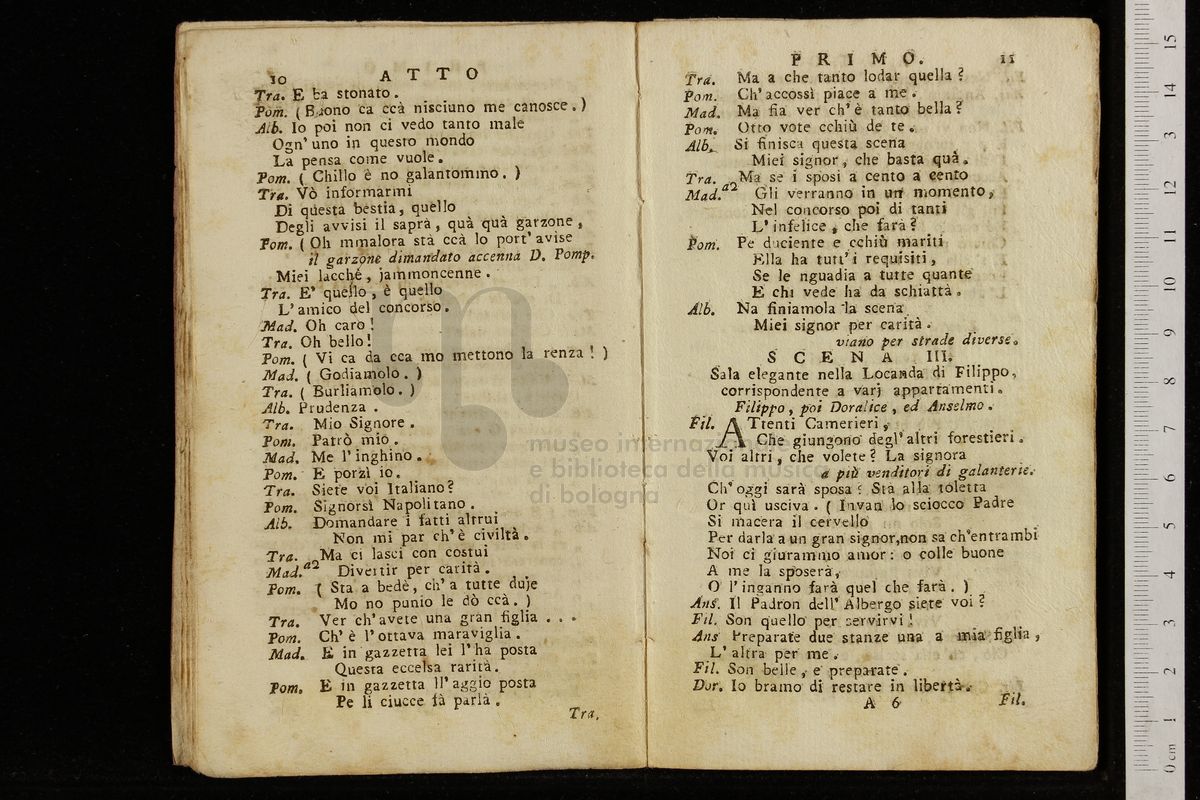 10 ATTO
Tra. E ba stonato.
Pom. (Buono ca ccà nisciuno me canosce.)
Alb. Io poi non ci vedo tanto male
Ogn' uno in questo mondo
La pensa come vuole.
Pom. (Chillo è no galantommo.)
Tra. Vò informarmi
Di questa bestia, quello
Degli avvisi il saprà, quà quà garzone,
Pom. (Oh mmalora sta ccà lo port' avise
il garzone dimandato accenna D. Pomp.
Miei lacché, jammoncenne.
Tra. E' quello, è quello
L' amico del concorso.
Mad. Oh caro!
Tra. Oh bello!
Pom. (Vi ca da cca mo mettono la renza!)
Mad. (Godiamolo.)
Tra. (Burliamolo.)
Alb. Prudenza.
Tra. Mio Signore.
Pom. Patrò mio.
Mad. Me l' inghino.
Pom. E porzì io.
Tra. Siete voi Italiano?
Pom. Signorsì Napolitano.
Alb. Domandare i fatti altrui
Non mi par ch' è civiltà.
Tra. Ma ci lasci con costui
Mad. a2 Divertir per carità.
Pom. (Sta a bedè, ch' a tutte duje
Mo no punio le dò ccà.)
Tra. Ver ch' avete una gran figlia...
Pom. Ch' è l' ottava maraviglia.
Mad. E in gazzetta lei l' ha posta
Questa eccelsa rarità.
Pom. E in gazzetta ll' aggio posta
Pe li ciucce fà parlà.
Tra.
PRIMO. 11
Tra. Ma a che tanto lodar quella?
Pom. Ch' accossì piace a me.
Mad. Ma fia ver ch' è tanto bella?
Pom. Otto vote cchiù de te.
Alb. Si finisca questa scena
Miei signor, che basta quà.
Tra. Ma se i sposi a cento a cento
Mad. a2 Gli verranno in un momento,
Nel concorso poi di tanti
L' infelice, che farà?
Pom. Pe duciente e cchiù mariti
Ella ha tutt' i requisiti,
Se le nguadia a tutte quante
E chi vede ha da schiattà.
Alb. Na finiamola la scena
Miei signor per carità.
viano per strade diverse.
SCENA III.
Sala elegante nella Locanda di Filippo,
corrispondente a varj appartamenti.
Filippo, poi Doralice, ed Anselmo.
Fil. ATtenti Camerieri,
Che giungono degl' altri forestieri.
Voi altri, che volete? La signora
a più venditori di galanterie.
Ch' oggi sarà sposa? Sta alla toletta
Or quì usciva. (Invan lo sciocco Padre
Si macera il cervello
Per darla a un gran signor, non sa ch'entrambi
Noi ci giurammo amor: o colle buone
A me la sposerà,
O l' inganno farà quel che farà.)
Ans. Il Padron dell' Albergo siete voi?
Fil. Son quello per servirvi!
Ans Preparate due stanze una a mia figlia,
L' altra per me.
Fil. Son belle, e preparate.
Dor. Io bramo di restare in libertà.
A 6 Fil.
museo internazionale
e biblioteca della musica
di bologna